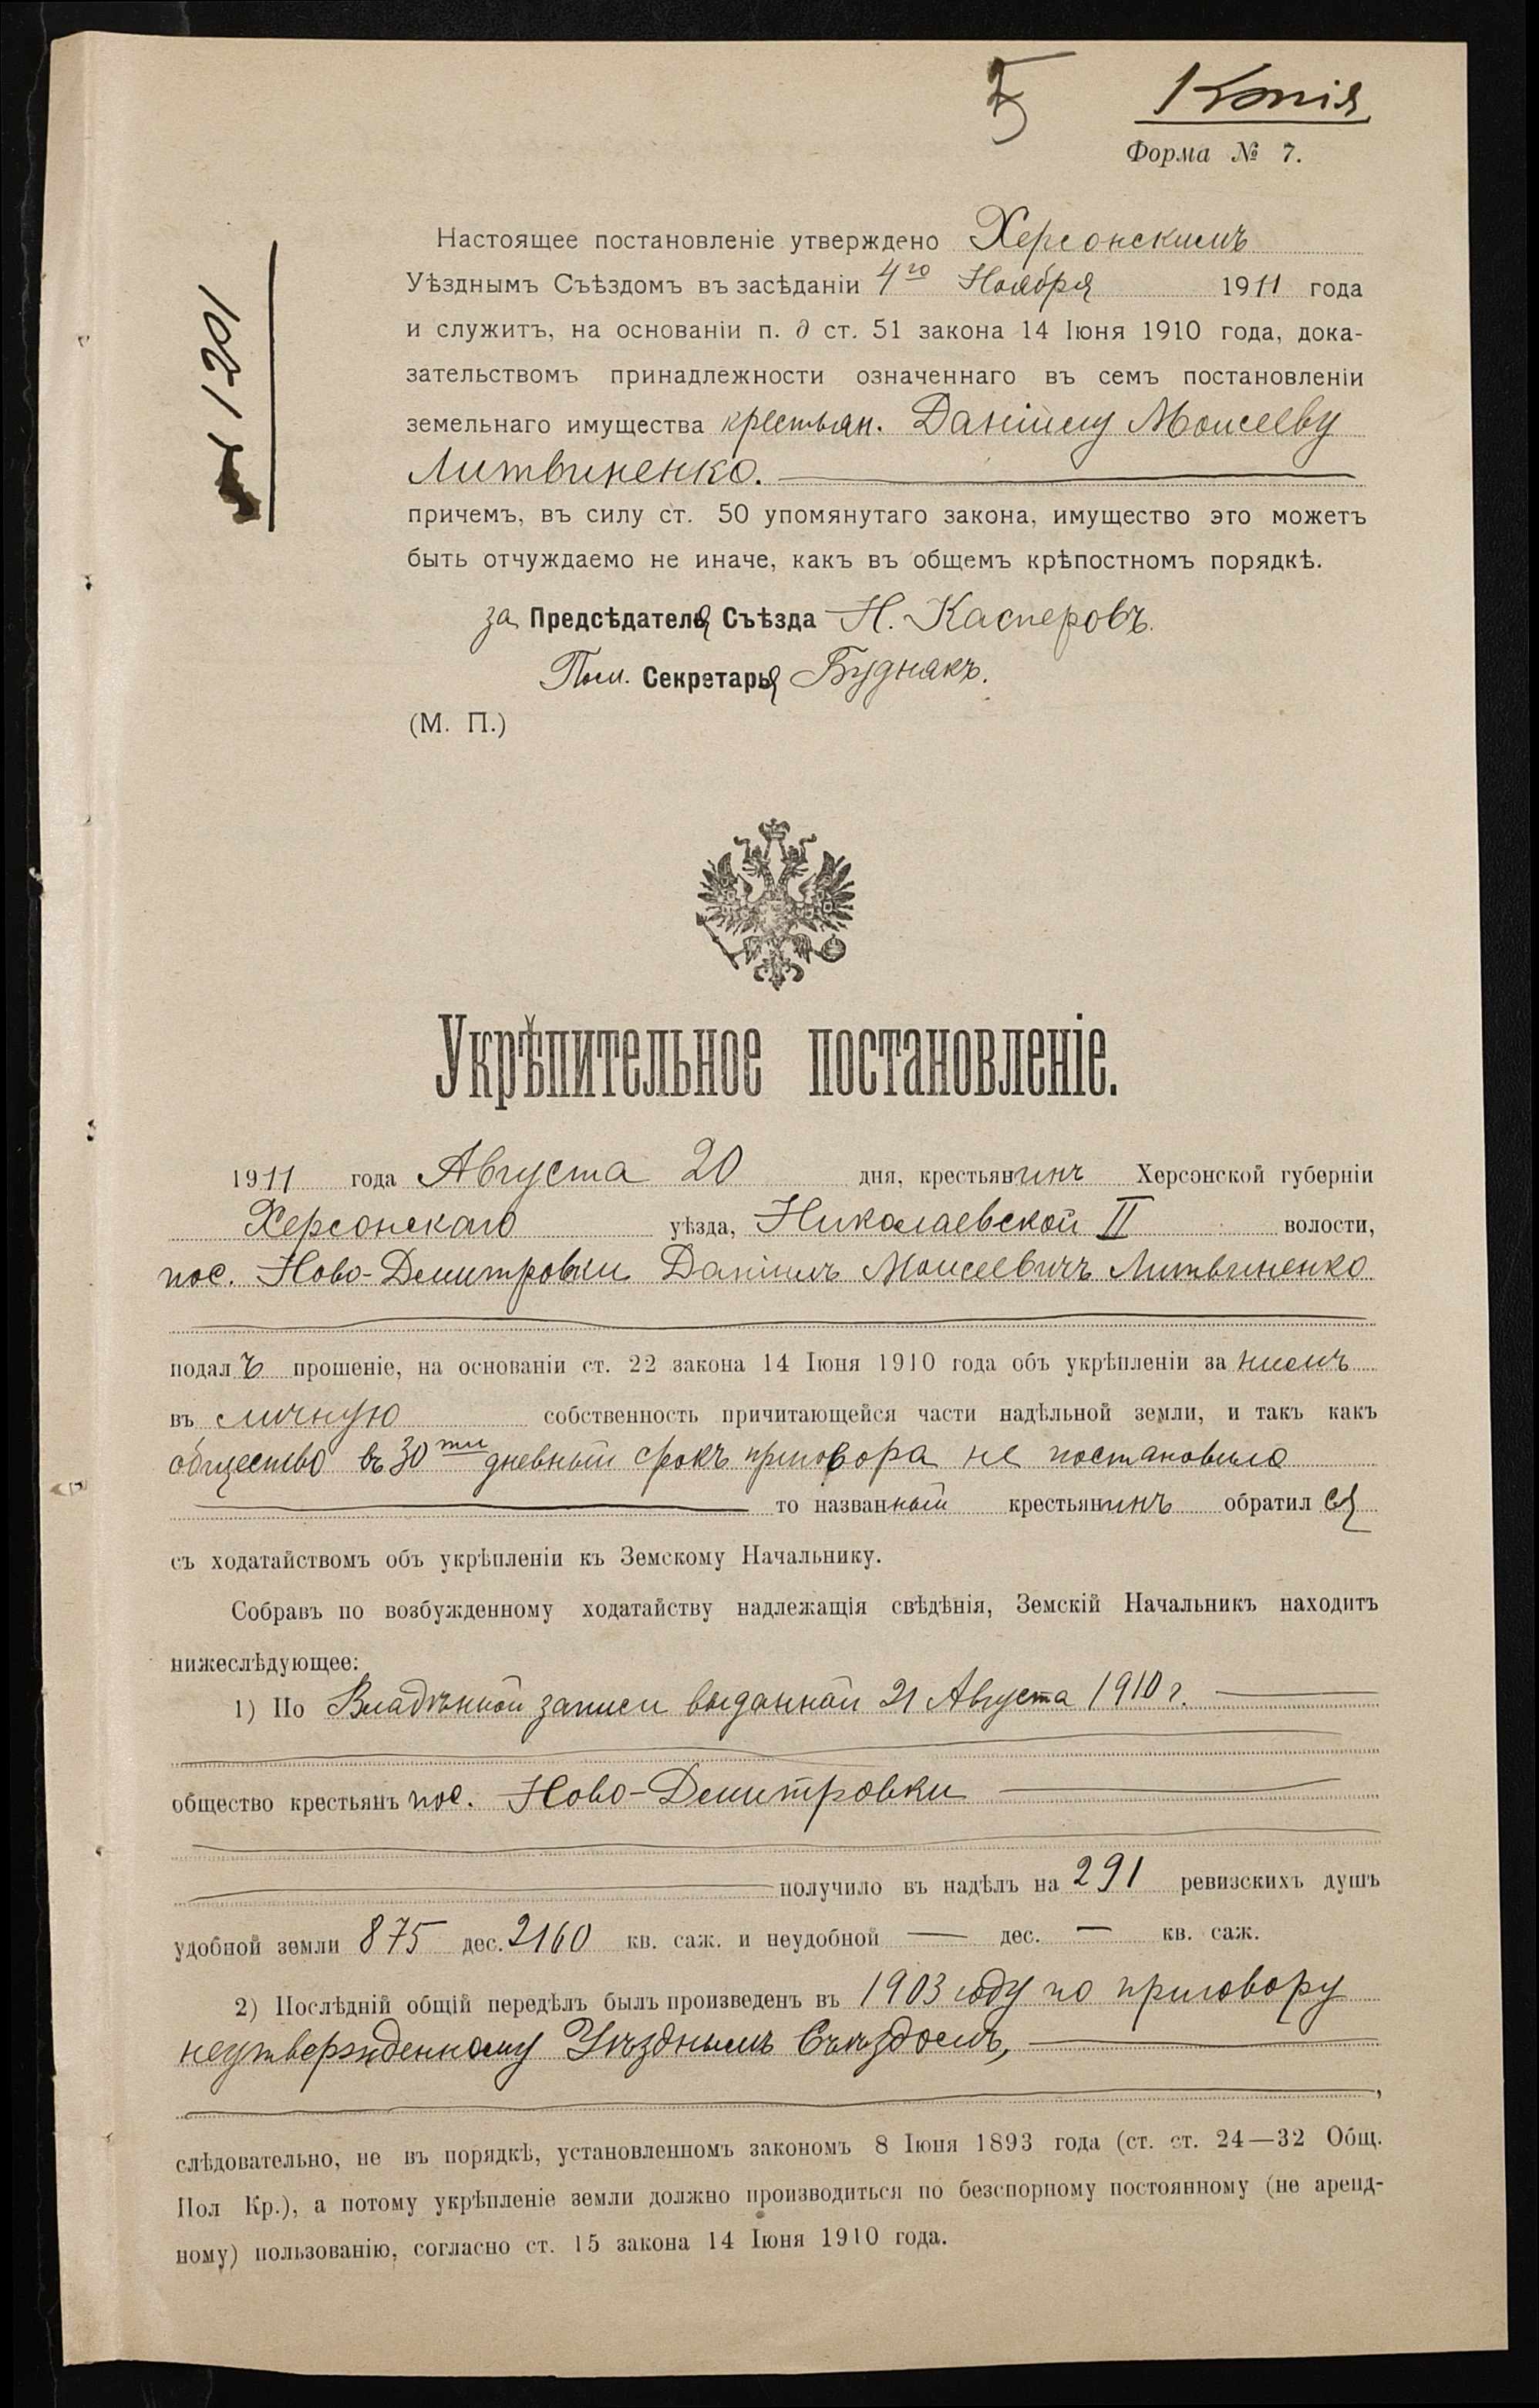 5
Копія
Форма № 7.
№ 1201
Настоящее постановленіе утверждено Херсонскимъ
Уѣзднымъ Съѣздомъ въ засѣданіи 4го Ноября 1911 года
и служитъ, на основаніи п. д ст. 51 закона 14 Іюня 1910 года, дока-
зательствомъ принадлежности означеннаго въ семъ постановленіи
земельнаго имущества крестьян. Даніилу Моисееву
Литвиненко.
причемъ, въ силу ст. 50 упомянутаго закона, имущество это можетъ
быть отчуждаемо не иначе, какъ въ общемъ крѣпостномъ порядкѣ.
за Предсѣдателя Съѣзда Н. Касперовъ.
Пом. Секретаря Буднякъ.
(М. П.)
Укрѣпительное постановленіе.
1911 года Августа 20 дня, крестьянинъ Херсонской губерніи
Херсонскаго уѣзда, Николаевской II волости,
пос. Ново-Димитровки Даніилъ Моисеевичъ Литвиненко
подалъ прошеніе, на основаніи ст. 22 закона 14 Іюня 1910 года объ укрѣпленіи за нимъ
въ личную собственность причитающейся части надѣльной земли, и такъ какъ
общество въ 30ти дневный срокъ приговора не постановило
то названный крестьянинъ обратился
съ ходатайствомъ объ укрѣпленіи къ Земскому Начальнику.
Собравъ по возбужденному ходатайству надлежащія свѣдѣнія, Земскій Начальникъ находитъ
нижеслѣдующее:
1) По Владѣнной записи выданной 21 Августа 1910 г.
общество крестьянъ пос. Ново-Димитровки
получило въ надѣлъ на 291 ревизскихъ душъ
удобной земли 875 дес. 2160 кв. саж. и неудобной — дес. — кв. саж.
2) Послѣдній общій передѣлъ былъ произведенъ въ 1903 году по приговору
неутвержденному Уѣзднымъ Съѣздомъ,
,
слѣдовательно, не въ порядкѣ, установленномъ закономъ 8 Іюня 1893 года (ст. ст. 24—32 Общ.
Пол Кр.), а потому укрѣпленіе земли должно производиться по безспорному постоянному (не аренд-
ному) пользованію, согласно ст. 15 закона 14 Іюня 1910 года.